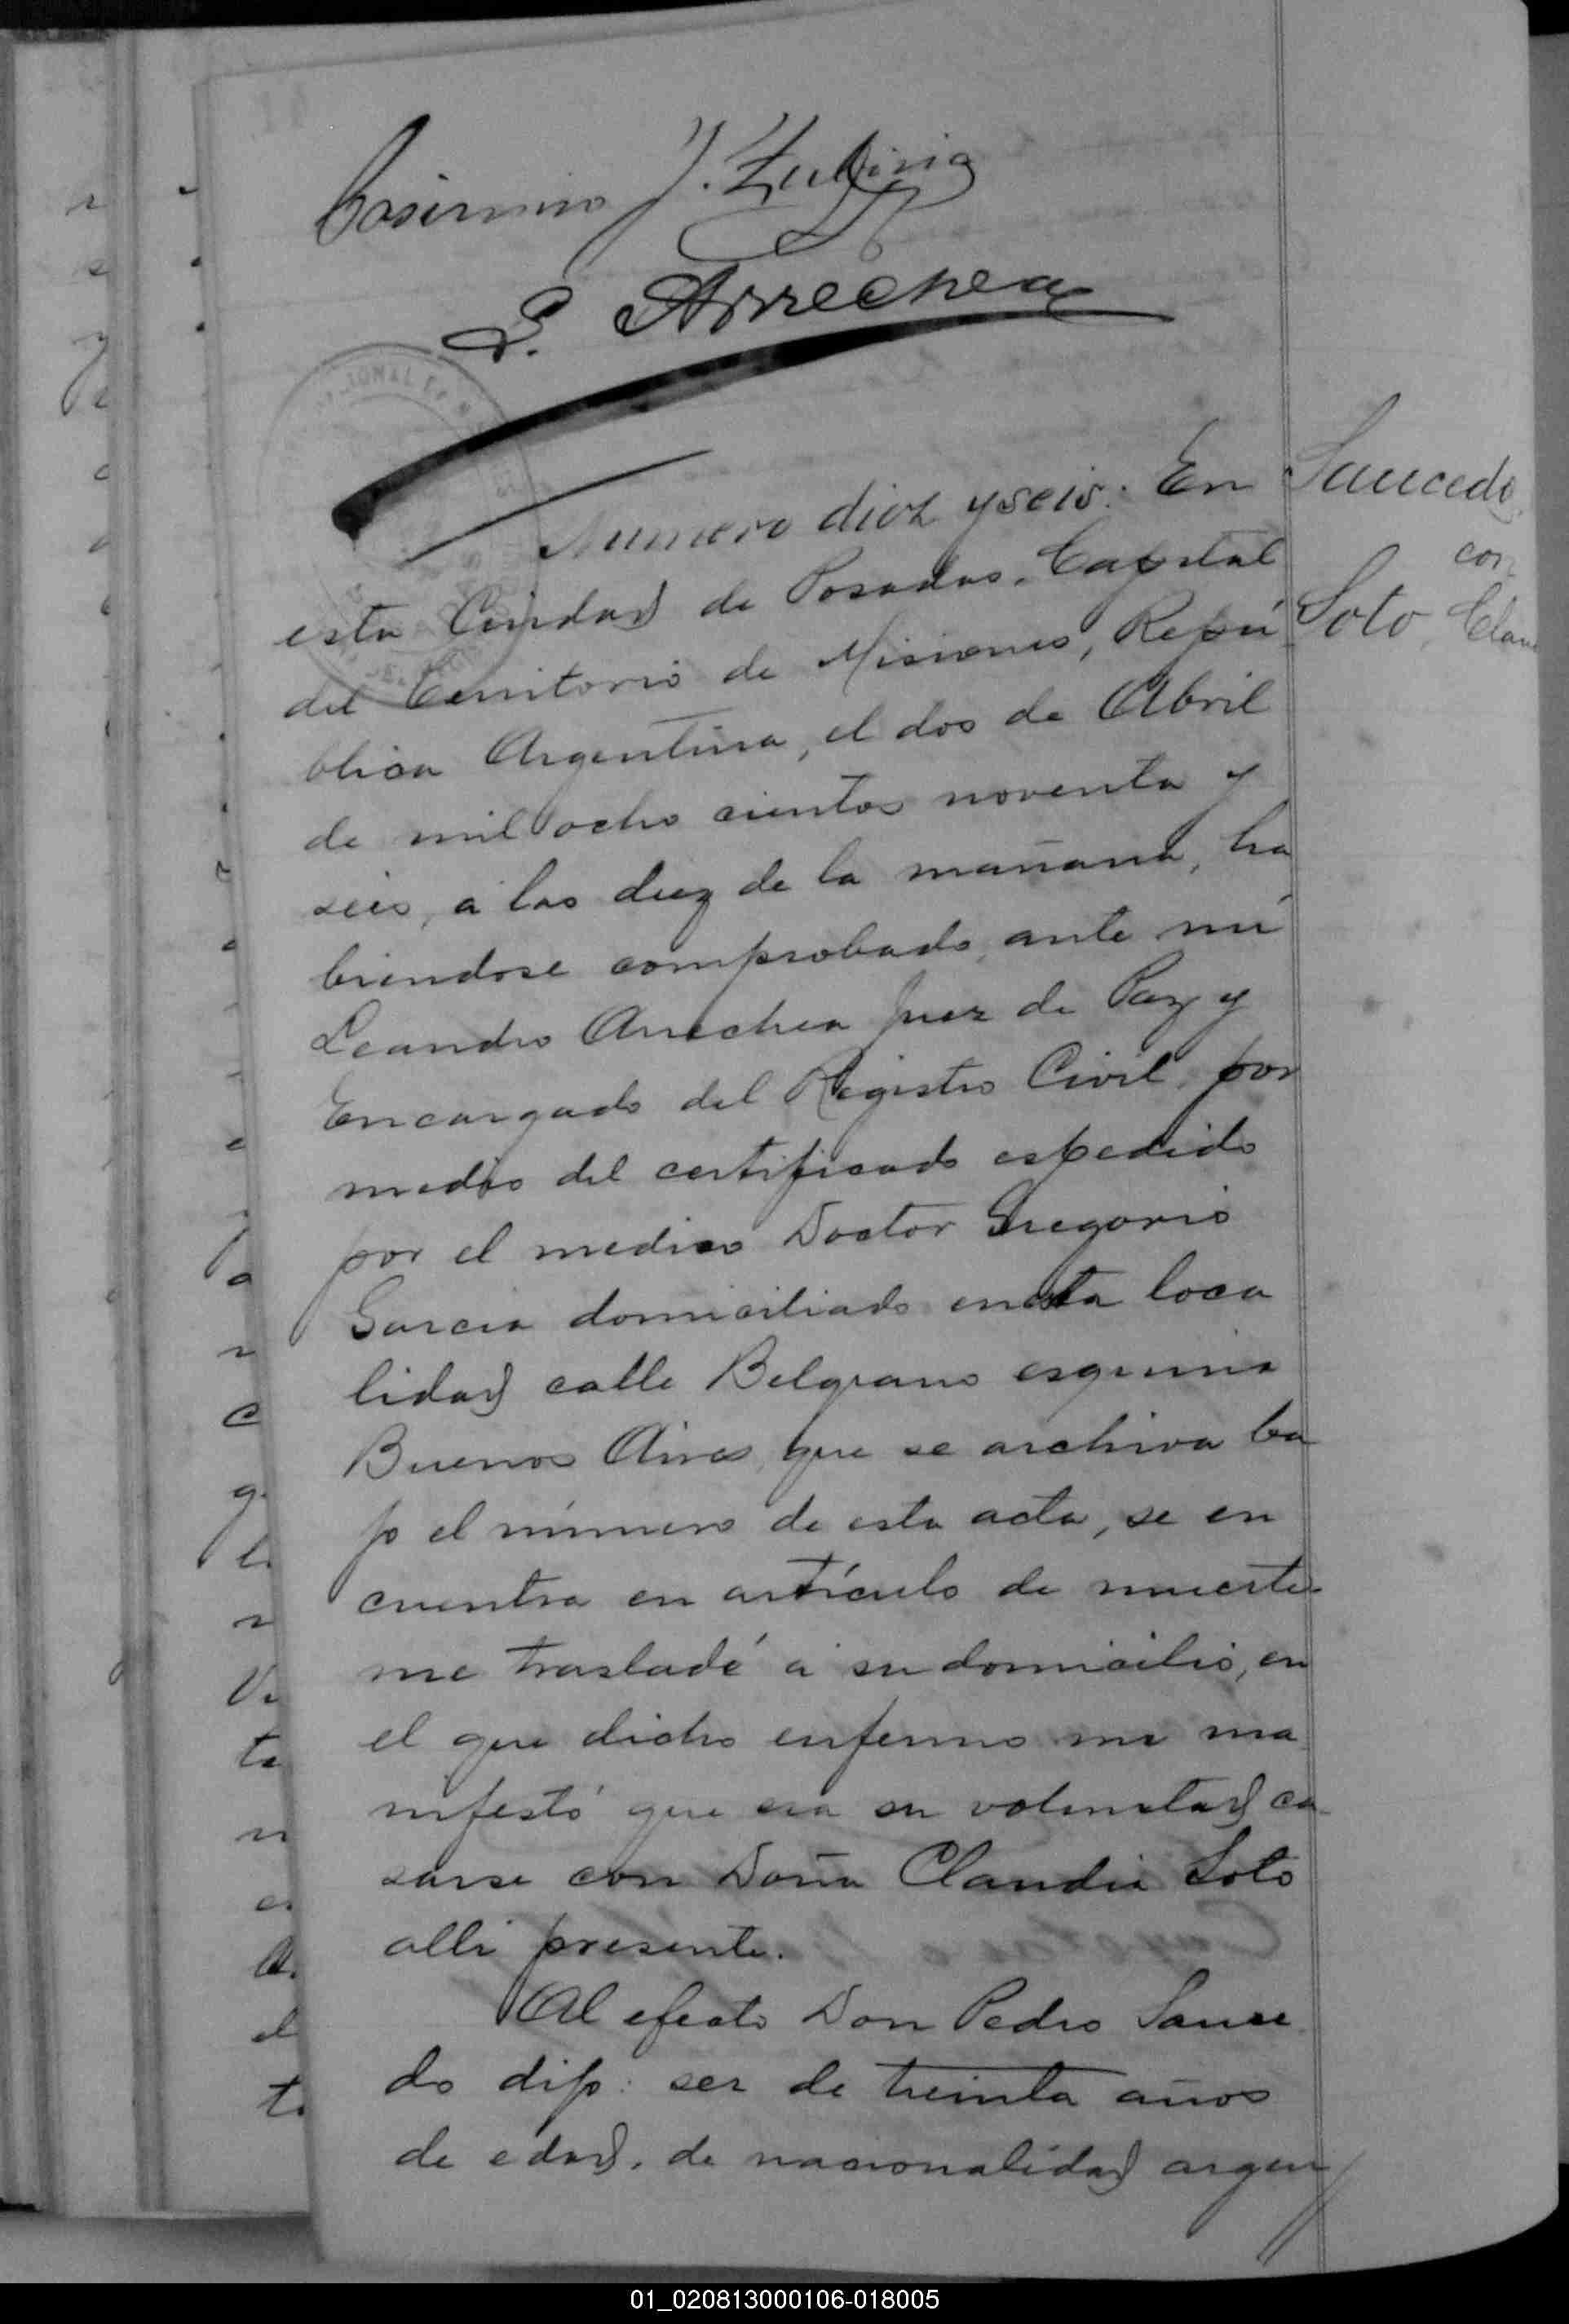 Casimiro J. Zubiria
L. Arrechea
Numero diez y seis. En
esta Ciudad de Posadas, Capital
del Territorio de Misiones, Repú
blica Argentina, el dos de Abril
de mil ocho cientos noventa y
seis, a las diez de la mañana, ha
biendose comprobado, ante mi
Leandro Arrechea Juez de Paz y
Encargado del Registro Civil, por
medio del certificado espedido
por el medico Doctor Gregorio
Garcia domiciliado en esta loca
lidad calle Belgrano esquina
Buenos Aires, que se archiva ba
jo el número de esta acta, se en
cuentra en artículo de muerte
me trasladé a su domicilio, en
el que dicho enfermo me ma
nifestó que era su voluntad ca
sarse con Doña Claudia Soto
alli presente.
Al efecto Don Pedro Sauce
do dijo: ser de treinta años
de edad, de nacionalidad argen
Saucedo
con
Soto, Clau
01_020813000106-018005